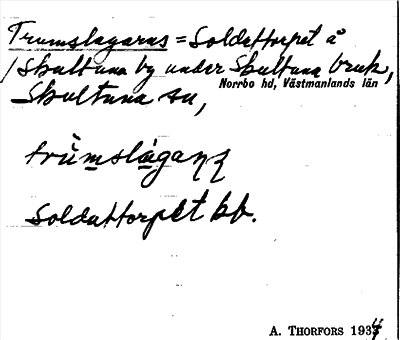 Trumslagarns = Soldattorpet å
/ Skultuna by under Skultuna bruk,
Norrbo hd, Västmanlands län
Skultuna sn,
Soldattorpet bb.
A. THORFORS 1934